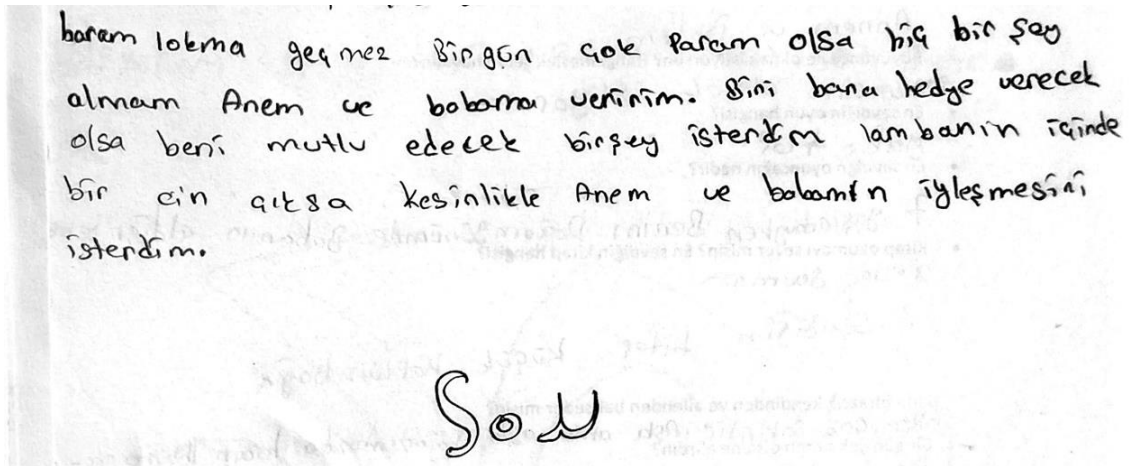 haram lokma geçmez Birgün çok Param olsa hiç bir şey
almam Anem ve babama veririm. Birİ bana hedge verecek
olsa beni mutlu edecek birşey isterdim lambanın içinde
bir cin çıksa kesinlikle Anem ve babamın iyleşmesini
isterdim.
Son